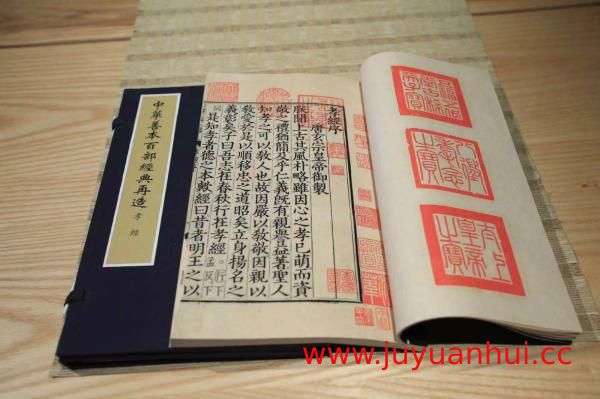 中華善本百部經典再造
孝經
孝經序
唐玄宗皇帝御製
朕聞上古其風朴略雖因心之孝已萌而資
敬之禮猶簡及乎仁義既有親譽益著聖人
知孝之可以敎人也故因嚴以敎敬因親以
敎愛於是以順移忠之道昭矣立身揚名之
義彰矣子曰吾志在春秋行在孝經。行下孟反下
同是知孝者德之本歟經曰昔者明王之以
八徵耄念之寶
太上皇帝之寶
www.juyuanhui.cc